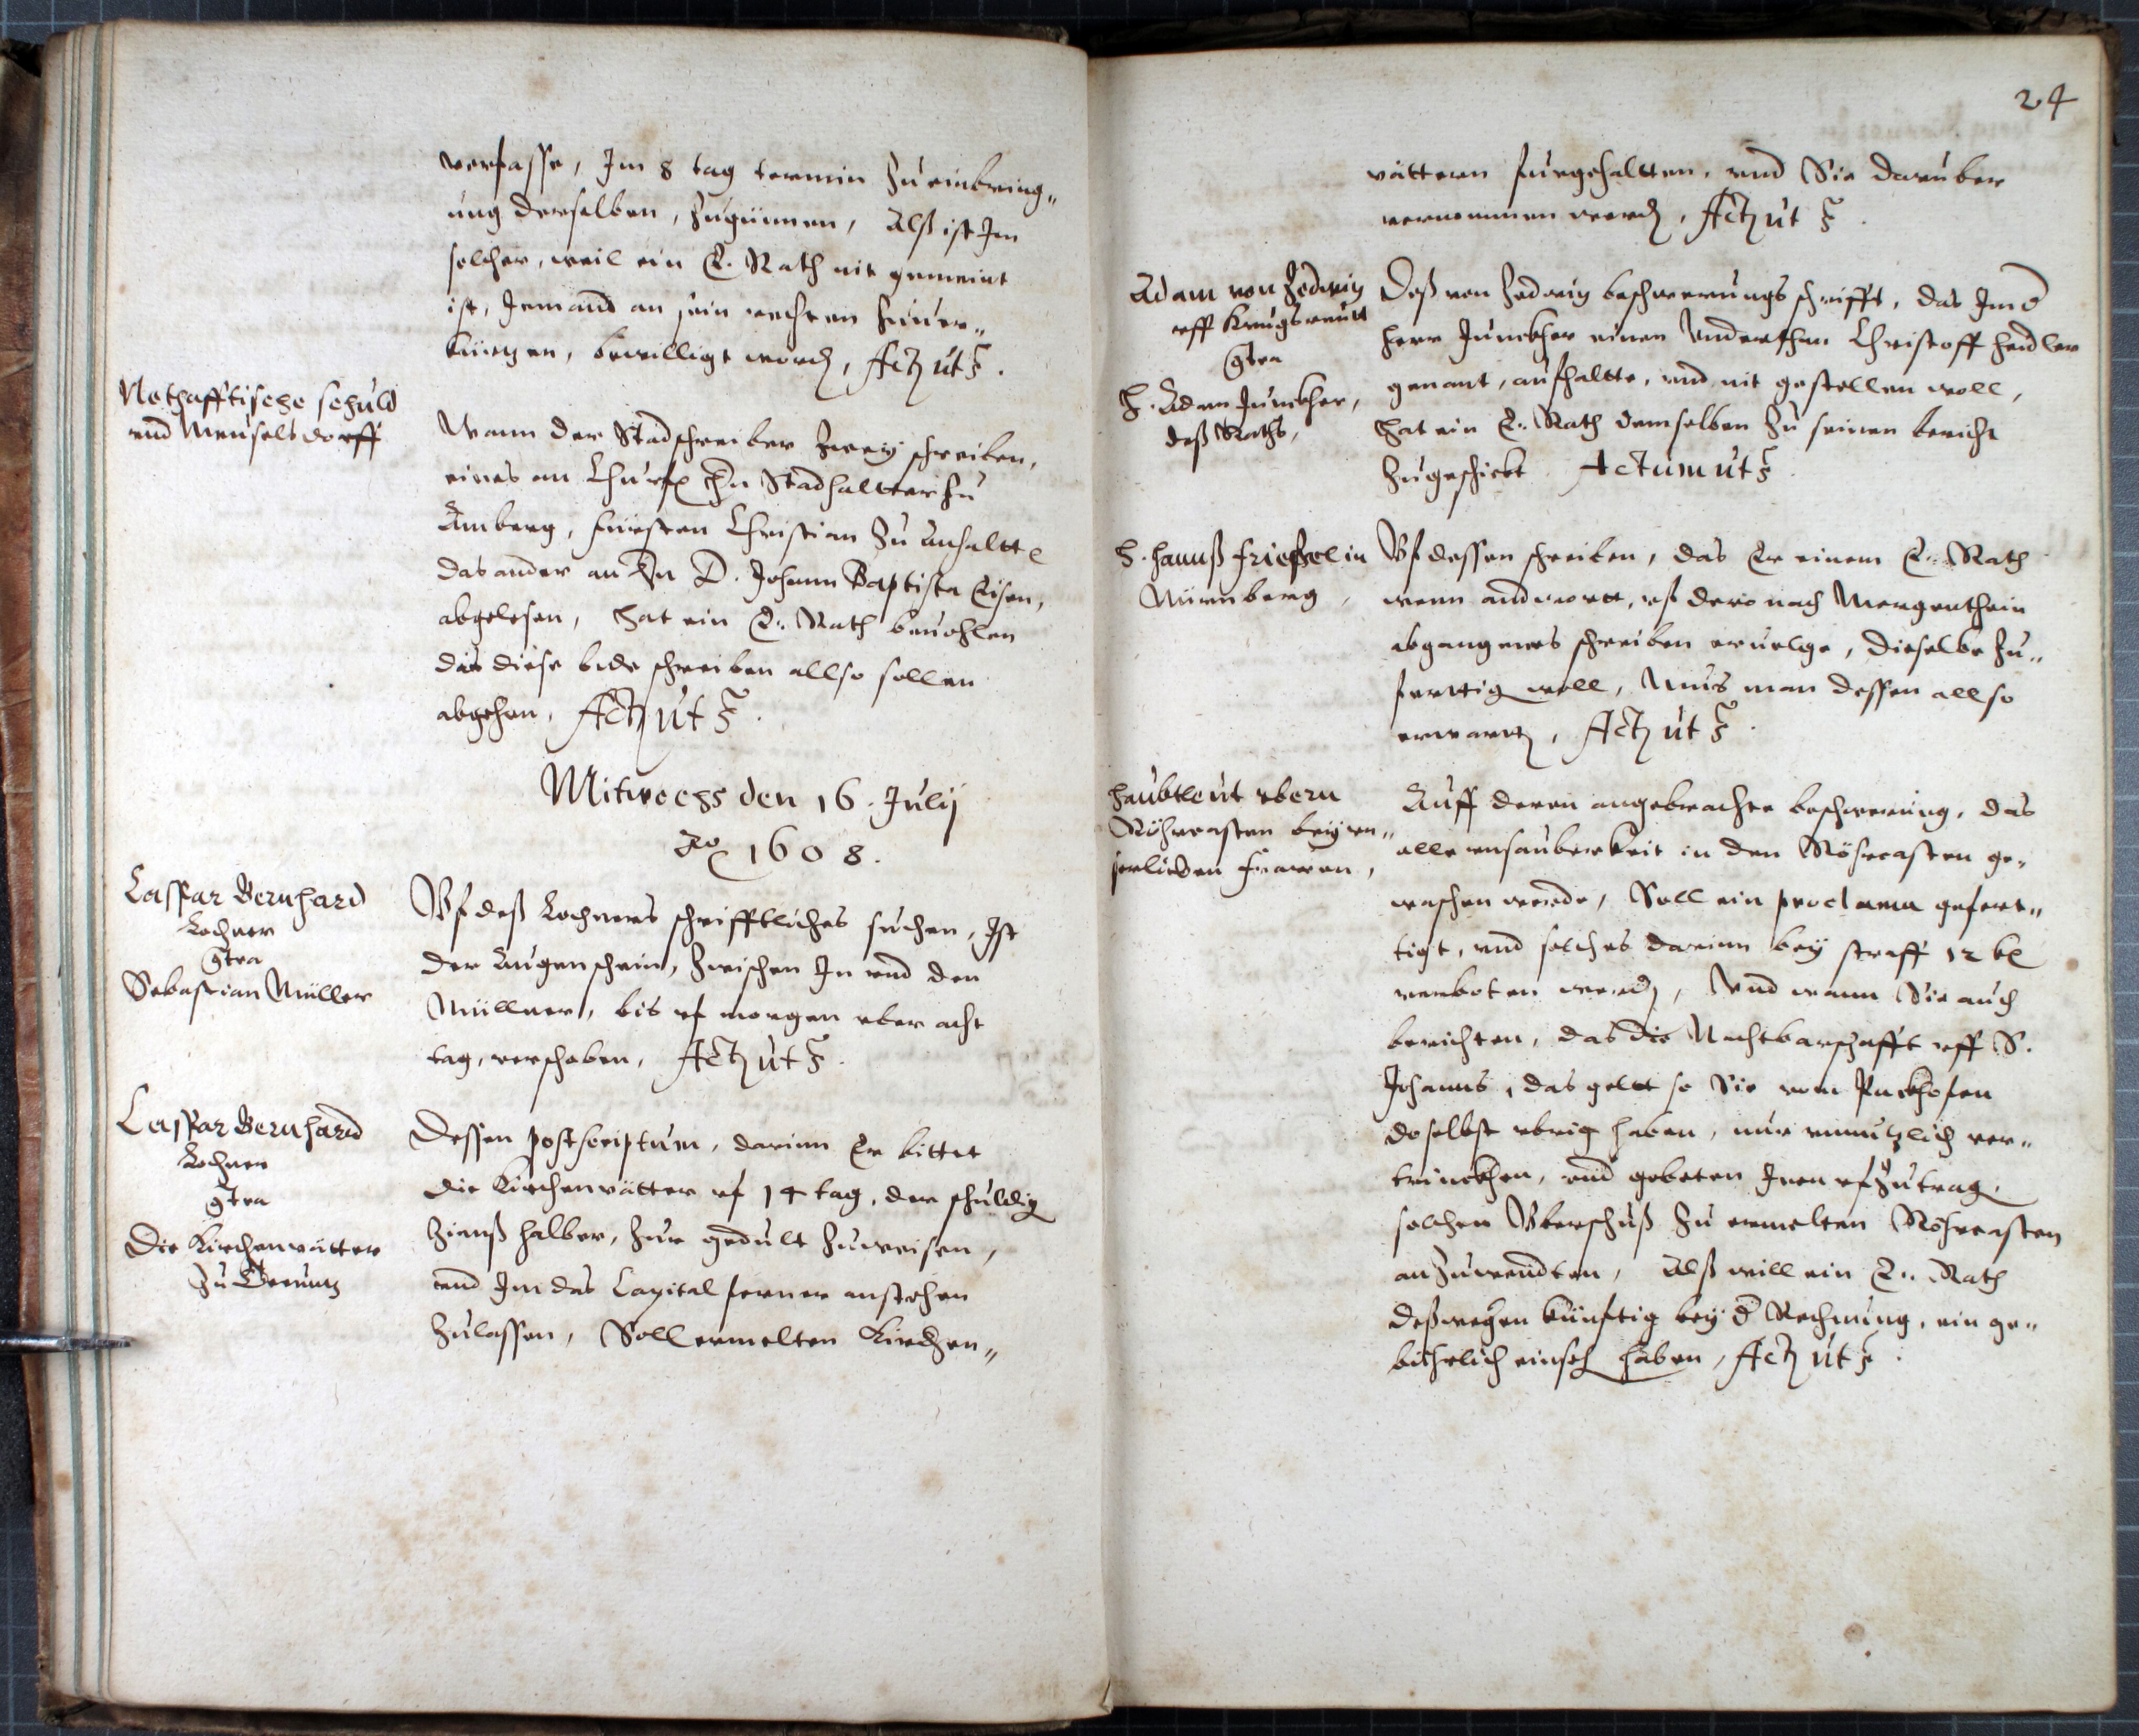 verfasse, Im 8 tag termin zu einbring„
ung derselben, zugünnen, Alß ist Im
solcher, weil ein E. Rath nit gemeint
ist, Jemand an sein rechten zuuer„
kürtzen, bewilligt word, Act ut s.
Nothafftische schuld
vnd Meuselsdorff
Wann der Stadschreiber zwey schreiben,
eines an Churf hn Stadhaltter zu
Amberg, fürsten Christian zu Anhaltt
das ander an hn D. Johann Baptista Eisen,
abgelesen, hat ein E. Rath beuohlen
das diese bede schreiben allso sollen
abgehen, Act ut s.
Mitwochs den 16. July
Ao 1608.
Caspar Bernhard
Lochner
Ctra
Sebastian Müller
Vf deß Lochners schrifftliches suchen, Ist
der Augenschein, zwischen In vnd den
Müllner, bis vf morgen vber acht
tag, verschoben, Act ut s.
Caspar Bernhard
Lochner
Ctra
Die Kirchenvätter
zu
Dessen postscriptum, darinn Er bittet
die Kirchenvätter vf 14 tag, der schuldig
Zinnß halber, zur gedult zuweisen,
vnd Im das Capital ferner anstehen
zulassen, Soll ermelten Kirchen„
24
vättern furgehaltten, vnd Sie daruber
vernommen werd, Act ut s.
Adam von Zedwiz
vff Krugsreutt
Ctra
H. Adam Junckher,
deß Raths,
Deß von Zedwiz beschwerungs schrifft, das Im d
herr Junckher einen Vnderthan Christoff Heidler
genant, aufhaltte, vnd nit gestellen woll,
hat ein E. Rath demselben zu seinen bericht
zugeschickt. Actum ut s.
H. Hannß in
Nürnberg,
Vf dessen schreiben, das Er einem E. Rath
wenn andwortt, vf dero nach Mergenthein
abgangenes schreiben eruolge, dieselbe zu„
fertig woll, Mus man dessen allso
erwart, Act ut s.
Haubtleut vbern
Röhrcasten bey vn„
serlieben frawen,
Auff deren angebrachte beschwerung, das
alle vnsauberkeit in den Röhrcasten ge„
waschen werde, Soll ein proclama gefert„
tigt, vnd solches darinn bey straff 12 kr
verboten werd, Vnd wann Sie auch
berichten, das die Nachtbarschafft vff S.
Johanns, das geltt so Sie vom Puckhofen
doselbst vbrig haben, nur vnnutzlich ver„
trinckhen, vnd gebeten Inen vfzutrag,
solchen Vberschuß zu ermelten Röhrcasten
anzuwendten, Alß will ein E. Rath
deßwegen künftig bey d Rechnung, ein ge„
bührlich einseh haben, Act ut s.